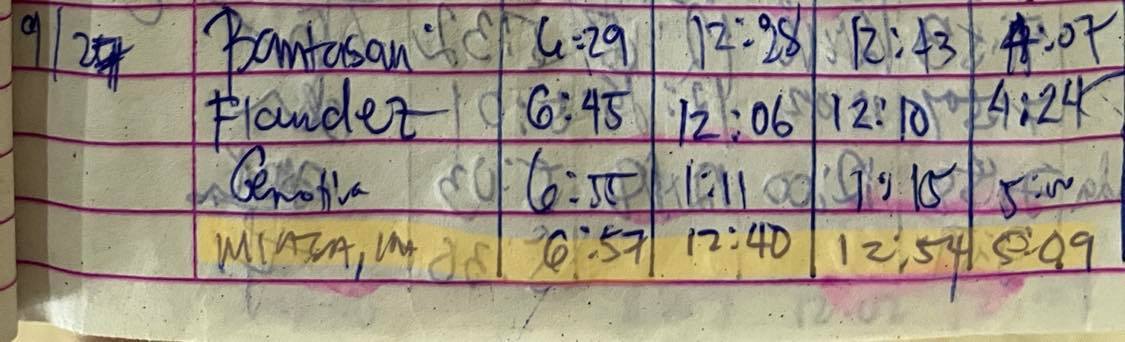 9/24 Bantasan 6:29 12:28 12:43 4:07
Flandez 6:45 12:06 12:10 4:24
Genotiva 6:55 1:11 1:15 5:00
6:57 12:40 12:54 5:09